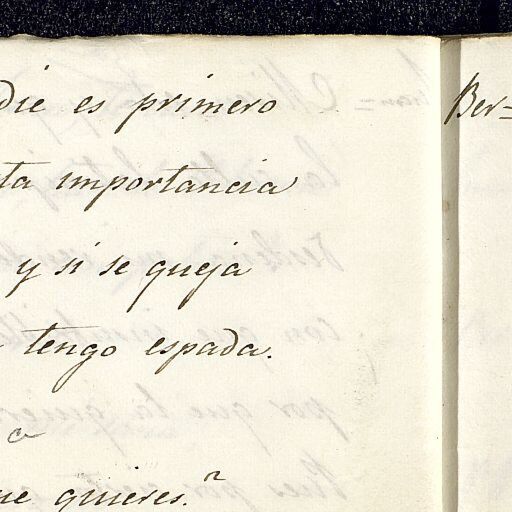 die es primero
ta importancia
y si se queja
tengo espada.
a
ue quieres.
Ber=